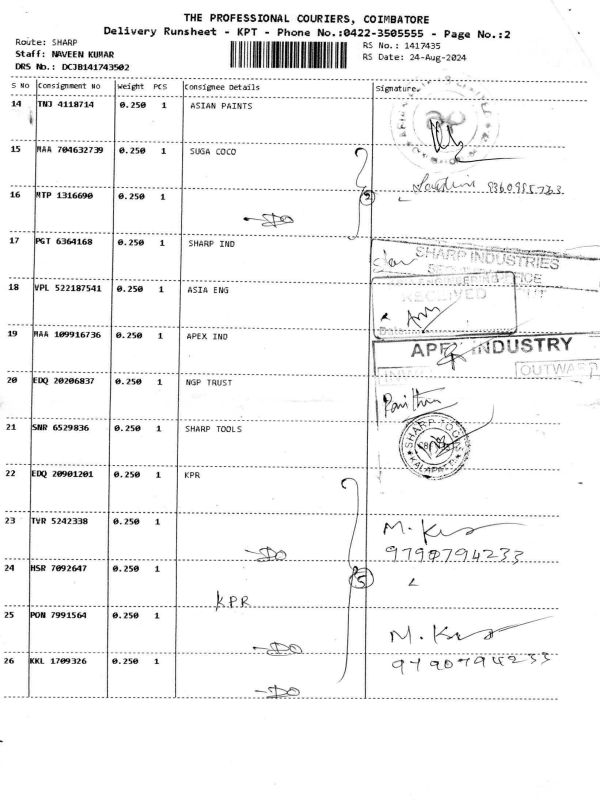 THE PROFESSIONAL COURIERS, COIMBATORE
Delivery Runsheet - KPT - Phone No.:0422-3505555 - Page No.:2
Route: SHARP
Staff: NAVEEN KUMAR
DRS No.: DCJB141743502
RS No.: 1417435
RS Date: 24-Aug-2024
S No Consignment No Weight PCS Consignee Details Signature
14 TNJ 4118714 0.250 1 ASIAN PAINTS
15 MAA 704632739 0.250 1 SUGA COCO
16 MTP 1316690 0.250 1 -DO
2
17 PGT 6364168 0.250 1 SHARP IND
SHARP INDUSTRIES
18 VPL 522187541 0.250 1 ASIA ENG
RECEIVED
Date
19 MAA 109916736 0.250 1 APEX IND
APEX INDUSTRY
OUTWARD
20 EDQ 20206837 0.250 1 NGP TRUST
21 SNR 6529836 0.250 1 SHARP TOOLS
SHARP TOOLS
KALAPATTI
22 EDQ 20901201 0.250 1 KPR
23 TVR 5242338 0.250 1 -DO
M. Ku
9790794233
24 HSR 7092647 0.250 1 KPR
5
25 PON 7991564 0.250 1 -DO
M. Ku
26 KKL 1709326 0.250 1 -DO
9790794233